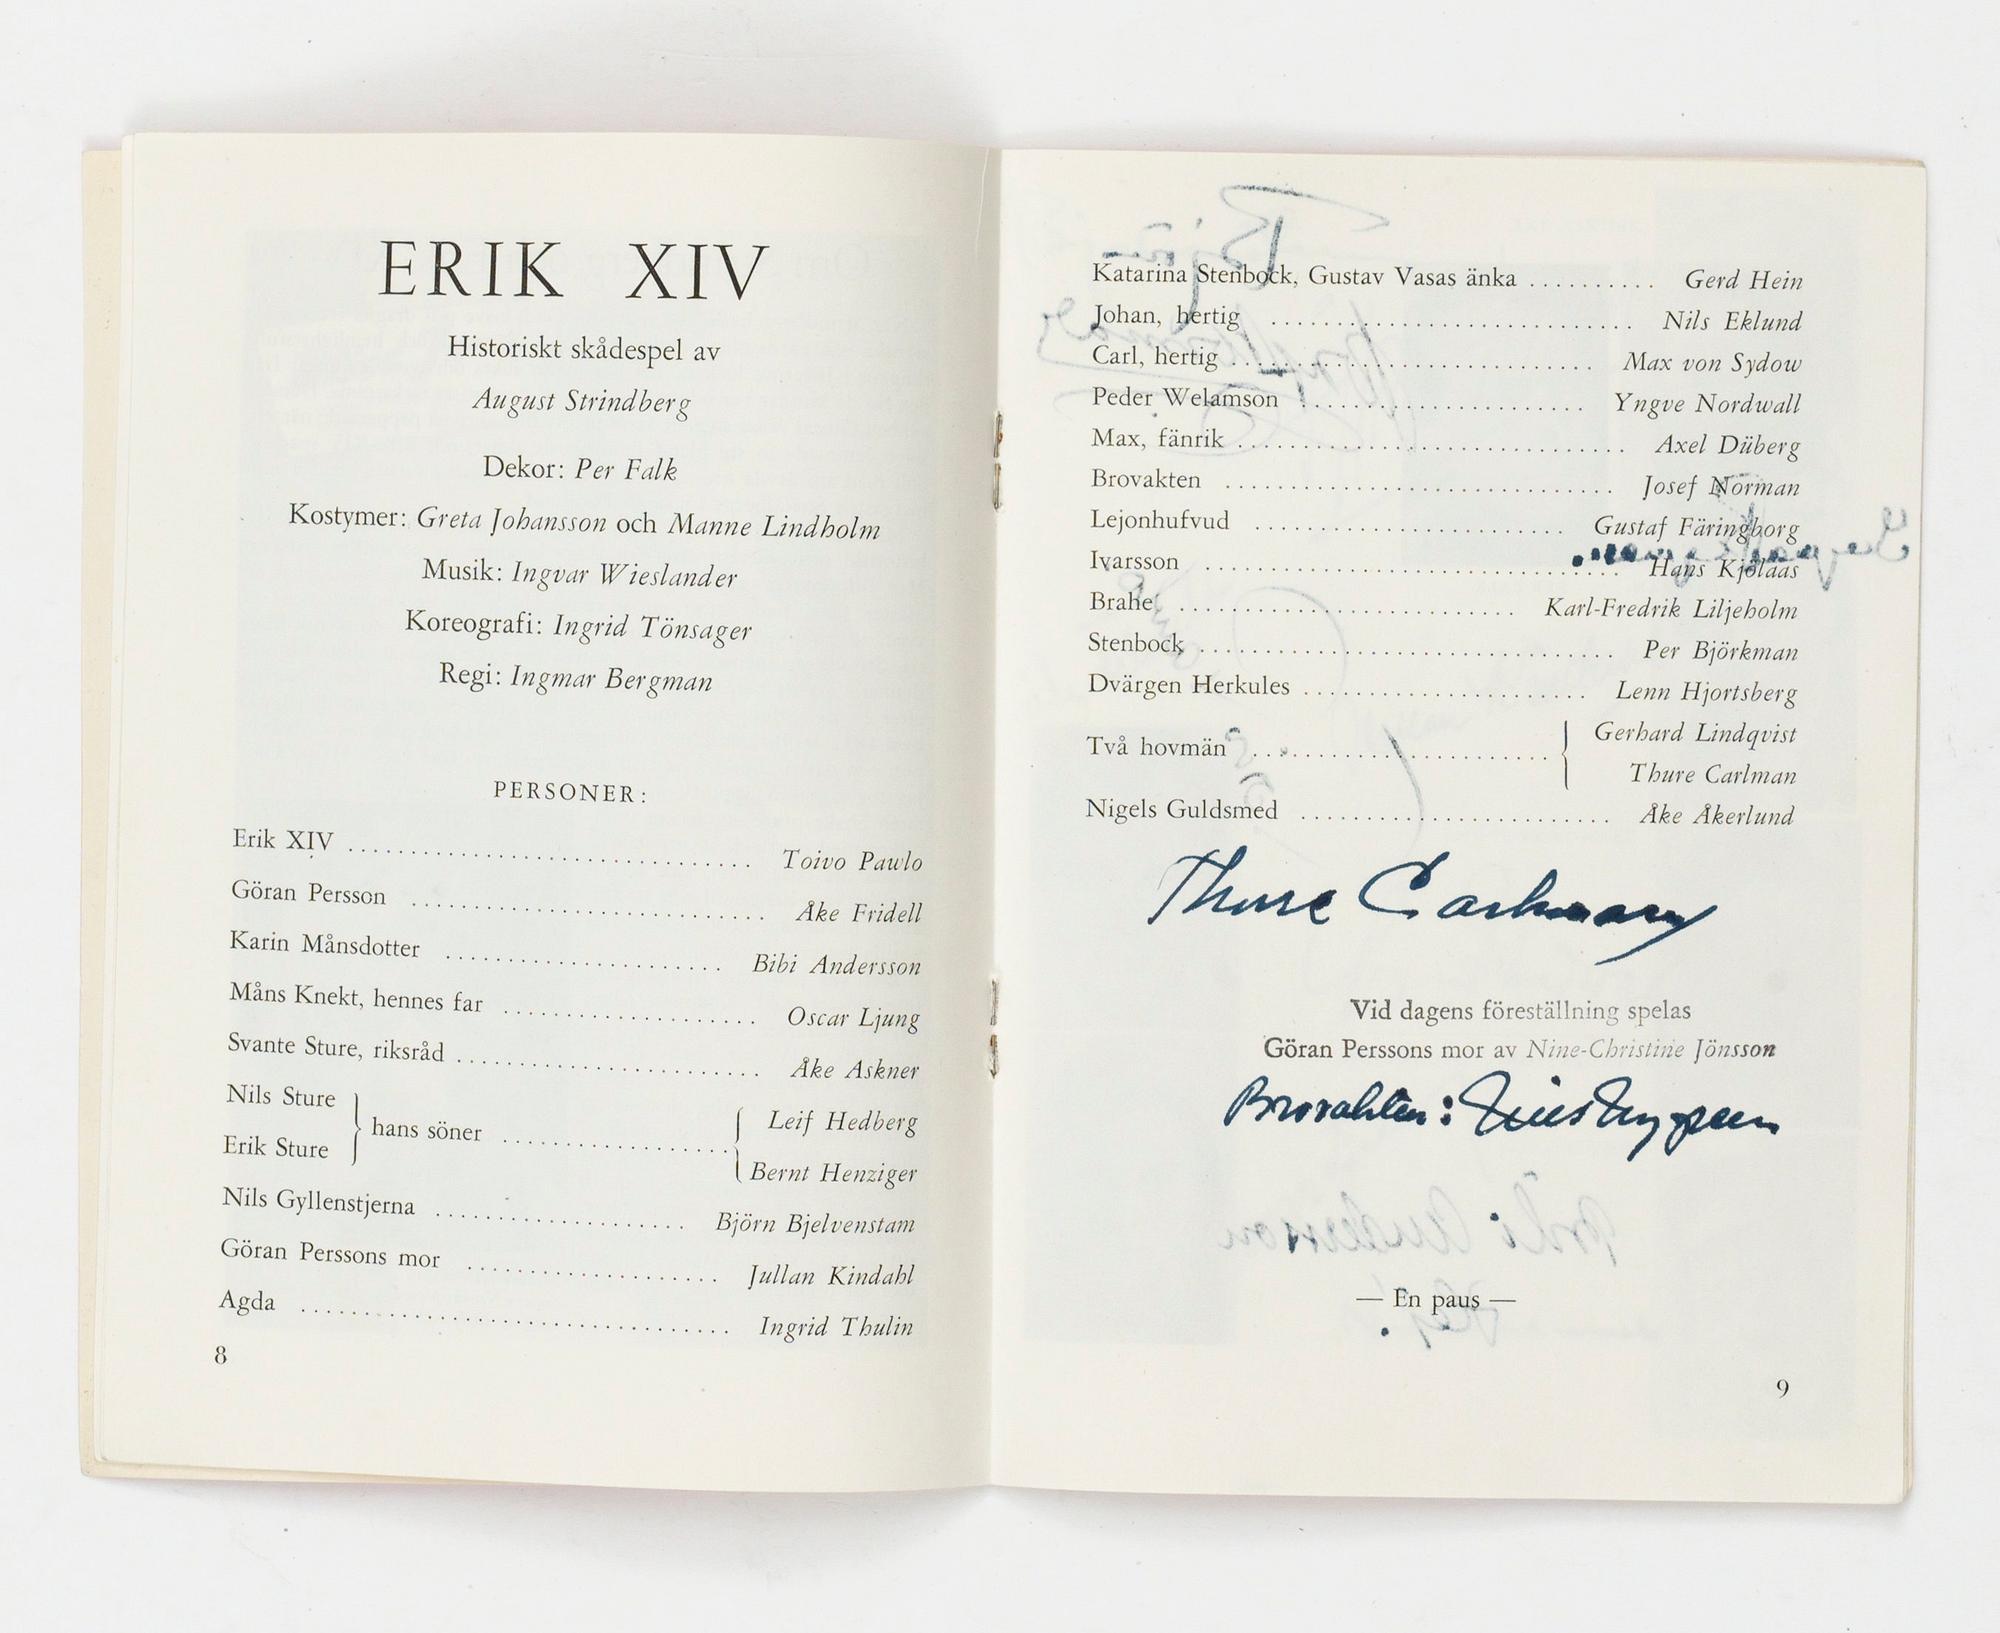 ERIK XIV
Historiskt skådespel av
August Strindberg
Dekor: Per Falk
Kostymer: Greta Johansson och Manne Lindholm
Musik: Ingvar Wieslander
Koreografi: Ingrid Tönsager
Regi: Ingmar Bergman
PERSONER:
Erik XIV .................................. Toivo Pawlo
Göran Persson ............................. Åke Fridell
Karin Månsdotter ...................... Bibi Andersson
Måns Knekt, hennes far ..................... Oscar Ljung
Svante Sture, riksråd ......................... Åke Askner
Nils Sture
Erik Sture
hans söner ...................
Leif Hedberg
Bernt Henziger
Nils Gyllenstjerna .................... Björn Bjelvenstam
Göran Perssons mor .................... Jullan Kindahl
Agda ................................... Ingrid Thulin
8
Katarina Stenbock, Gustav Vasas änka .......... Gerd Hein
Johan, hertig ............................. Nils Eklund
Carl, hertig ............................. Max von Sydow
Peder Welamson ....................... Yngve Nordwall
Max, fänrik ............................... Axel Düberg
Brovakten ............................... Josef Norman
Lejonhufvud ......................... Gustaf Färingborg
Ivarsson ................................. Hans Kjölaas
Brahe ........................... Karl-Fredrik Liljeholm
Stenbock ................................. Per Björkman
Dvärgen Herkules ....................... Lenn Hjortsberg
Två hovmän ........................
Gerhard Lindqvist
Thure Carlman
Nigels Guldsmed ......................... Åke Åkerlund
Thure Carlman
Vid dagens föreställning spelas
Göran Perssons mor av Nine-Christine Jönsson
Brovakten:
Bibi Andersson
Hej!
— En paus —
9